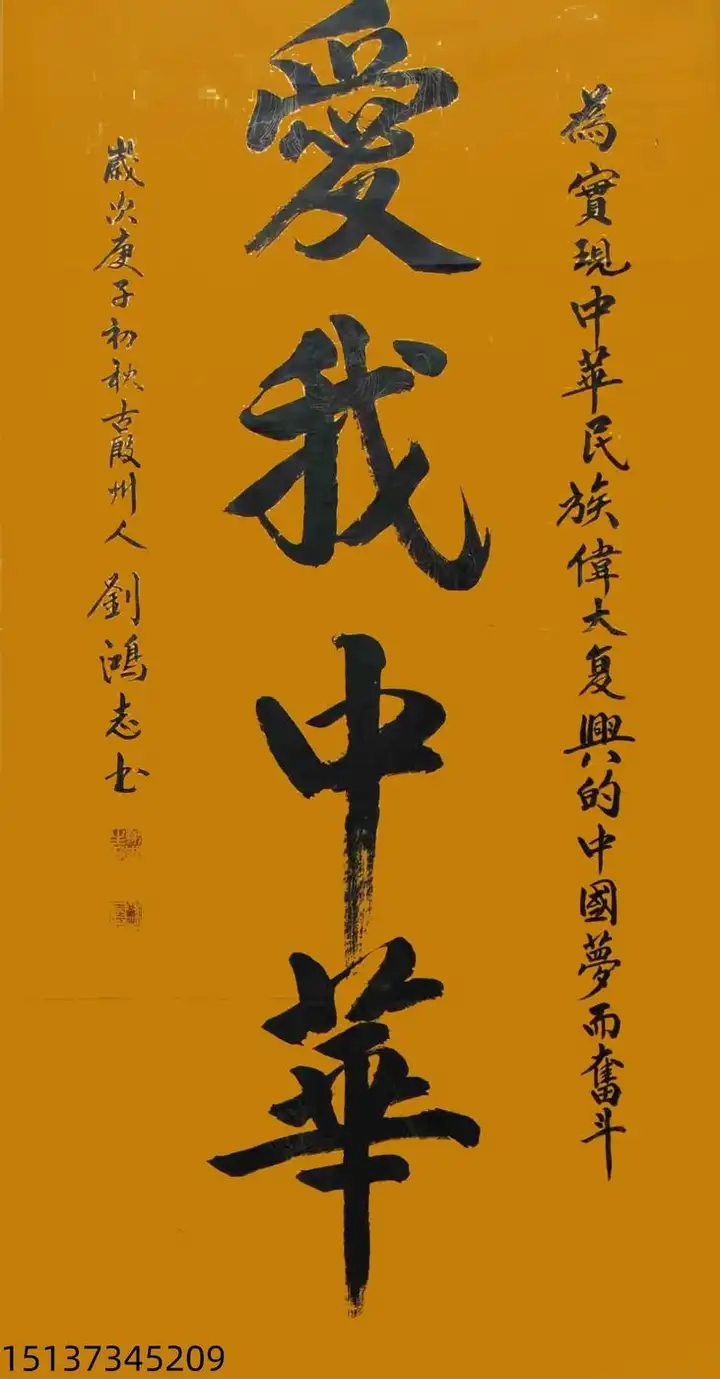 為實現中華民族偉大复興的中國夢而奮斗
愛我中華
歲次庚子初秋古殷州人劉鴻志书
15137345209